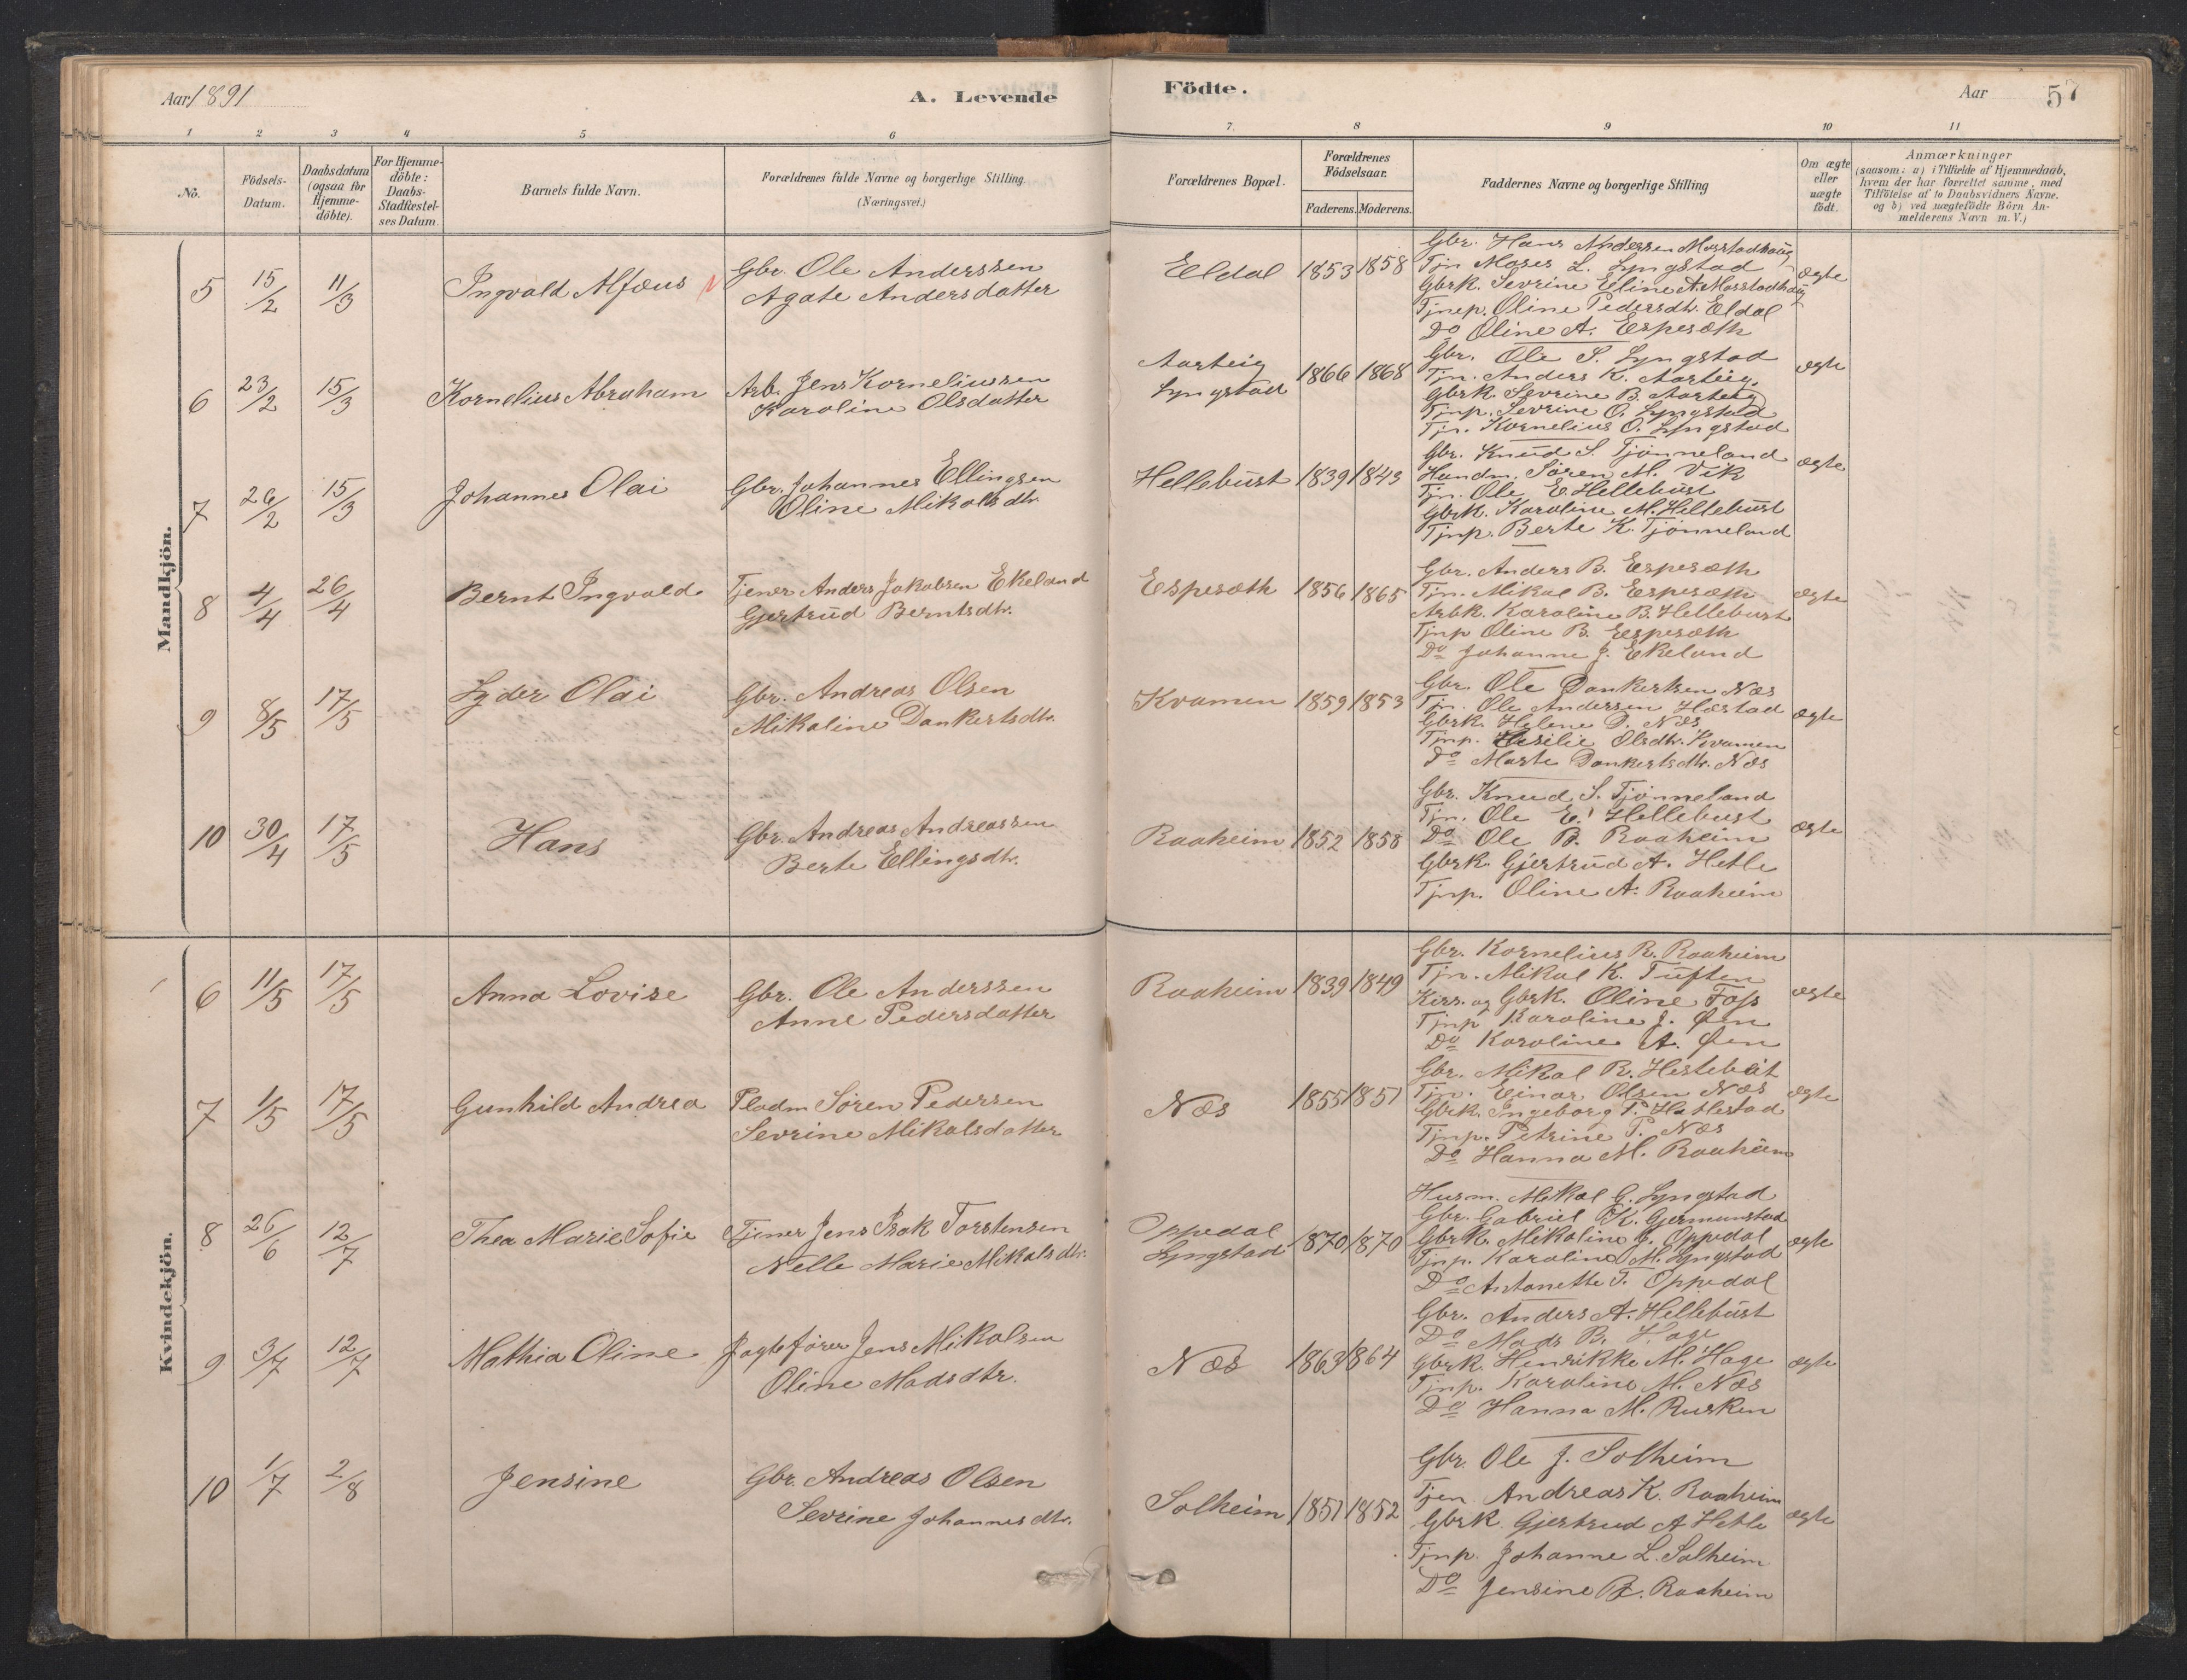 Aar 1891
A. Levende
Födte.
Aar
57
1 2 3 4 5 6 7. 8 9 10 11
No.
Födsels-Datum.
Daabsdatum (ogsaa for Hjemme-döbte).
For Hjemme-döbte: Daabs-Stadfæstel-ses Datum.
Barnets fulde Navn.
Forældrenes fulde Navne og borgerlige Stilling. (Næringsvei.)
Forældrenes Bopæl.
Forældrenes Födselsaar.
Faderens. Moderens.
Faddernes Navne og borgerlige Stilling
Om ægte eller uægte födt.
Anmærkninger
(saasom: a) i Tilfælde af Hjemmedaab,
hvem der har forrettet samme, med
Tilföielse af to Daabsvidners Navne.
og b) ved uægtefödte Börn An-
melderens Navn m. V.)
Mandkjön.
5 15/2 11/3 Ingvald Alfæus
Gbr. Ole Anderssen
Agate Andersdatter
Eldal 1853 1858
Gbr. Hans Andersen Masstadhaug
Tjn Moses L. Lyngstad
Gbrk. Sevrine Eline A. Masstadhaug
Tjnep. Oline Pedersdtr. Eldal
Do Oline A. Espesæth
ægte
6 23/2 15/3 Kornelius Abraham
Arb. Jens Korneliussen
Karoline Olsdatter
Aarteig
Lyngstad
1866 1868
Gbr. Ole S. Lyngstad
Tjn. Anders K. Aarteig.
Gbrk. Sevrine B. Aarteig
Tjnp. Sevrine O. Lyngstad
Tjn. Kornelius O. Lyngstad
ægte
7 26/2 15/3 Johannes Olai
Gbr. Johannes Ellingsen
Oline Mikalsdtr.
Hellebust 1839 1843
Gbr. Knud S. Tjønneland
Handm. Søren M. Vik
Tjn. Ole E. Hellebust
Gbrk. Karoline M. Hellebust
Tjnp. Berte K. Tjønneland
ægte
8 4/4 26/4 Bernt Ingvald
Tjener Anders Jakobsen Ekeland
Gjertrud Berntsdtr.
Espesæth 1856 1865
Gbr. Anders B. Espesæth
Tjn. Mikal B. Espesæth
Arbk. Karoline B. Hellebust
Tjnp Oline B. Espesæth
Do Johanne J. Ekeland
ægte
9 8/5 17/5 Lyder Olai
Gbr. Andreas Olsen
Mikaline Dankertsdtr.
Kvamen 1859 1853
Gbr. Ole Dankertsen Næs
Tjn. Ole Andersen Hæstad
Gbrk. Helene D. Næs
Tjnp. Olsdtr. Kvamen
Do Marte Dankertsdtr. Næs
ægte
10 30/4 17/5 Hans
Gbr. Andreas Andreassen
Berte Ellingsdtr.
Raaheim 1852 1858
Gbr. Knud S. Tjønneland
Tjn. Ole E. Hellebust
Do Ole B. Raaheim
Gbrk. Gjertrud A. Hetle
Tjnp. Oline A. Raaheim
ægte
Kvindekjön.
6 11/5 17/5 Anna Lovise
Gbr. Ole Anderssen
Anne Pedersdatter
Raaheim 1839 1849
Gbr. Kornelius R. Raaheim
Tjn. Mikal K. Tuften
Kirs. og Gbrk. Oline Foss
Tjnp Karoline J. Øen
Do Karoline A. Øen
ægte
7 1/5 17/5 Gunhild Andrea
Pladm Søren Pedersen
Sevrine Mikalsdatter
Næs 1855 1851
Gbr. Mikal R.
Tjn. Einar Olsen Næs
Gbrk. Ingeborg P. Hatlestad
Tjnp. Petrine P. Næs
Do Hanna M. Raaheim
ægte
8 26/6 12/7 Thea Marie Sofie
Tjener Jens Isak Torstensen
Nelle Marie Mikalsdtr.
Oppedal
Lyngstad
1870 1870
Husm. Mikal G. Lyngstad
Gbr. Gabriel K. Germunstad
Gbrk. Mikaline G. Oppedal
Tjnp. Karoline M. Lyngstad
Do Antonette T. Oppedal
ægte
9 3/7 12/7 Mathia Oline
Jagtefører Jens Mikalsen
Oline Madsdtr.
Næs 1863 1864
Gbr. Anders A. Hellebust
Do Mads B. Hage
Gbrk. Henrikke M. Hage
Tjnp. Karoline M. Næs
Do Hanna M. Rusken
ægte
10 1/7 2/8 Jensine
Gbr. Andreas Olsen
Sevrine Johannesdtr.
Solheim 1851 1852
Gbr. Ole J. Solheim
Tjen Andreas K. Raaheim
Gbrk. Gjertrud A Hetle
Tjnp. Johanne L. Solheim
Do Jensine R. Raaheim
ægte